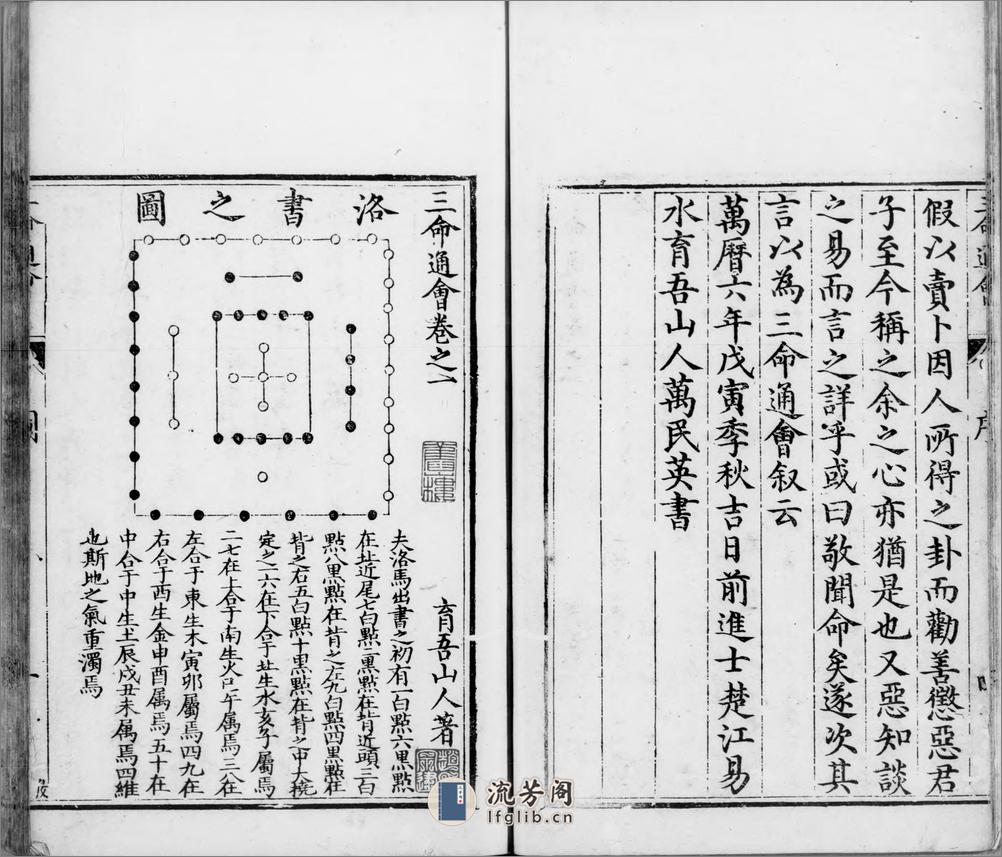 假以賣卜因人所得之卦而勸善懲惡君
子至今稱之余之心亦猶是也又惡知談
之易而言之詳乎或曰敬聞命矣遂次其
言以為三命通會叙云
萬曆六年戊寅季秋吉日前進士楚江易
水育吾山人萬民英書
三命通會卷之一
育吾山人著
洛書之圖
夫洛馬出書之初有一白點六黑點
在北近尾七白點二黑點在背近頭三白
點八黑點在背之左九白點四黑點在
背之右五白點十黑點在背之中大撓
定之一六在下合于北生水亥子屬焉
二七在上合于南生火巳午屬焉三八在
左合于東生木寅卯屬焉四九在
右合于西生金申酉屬焉五十在
中合于中生土辰戌丑未屬焉四維
也斯地之氣重濁焉
流芳阁
lfglib.cn